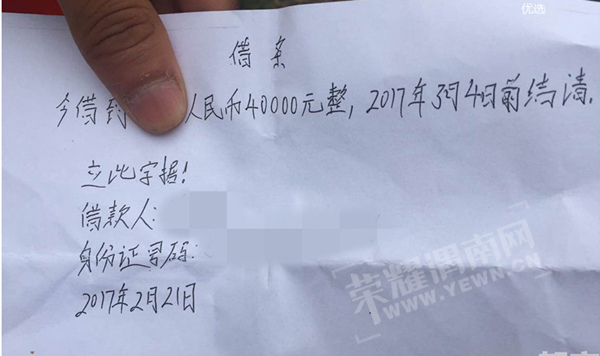 优选
借条
今借到 人民币40000元整，2017年3月4日前结清.
立此字据!
借款人:
身份证号码:
2017年2月21日
荣耀渭南网
WWW.YEWN.CN